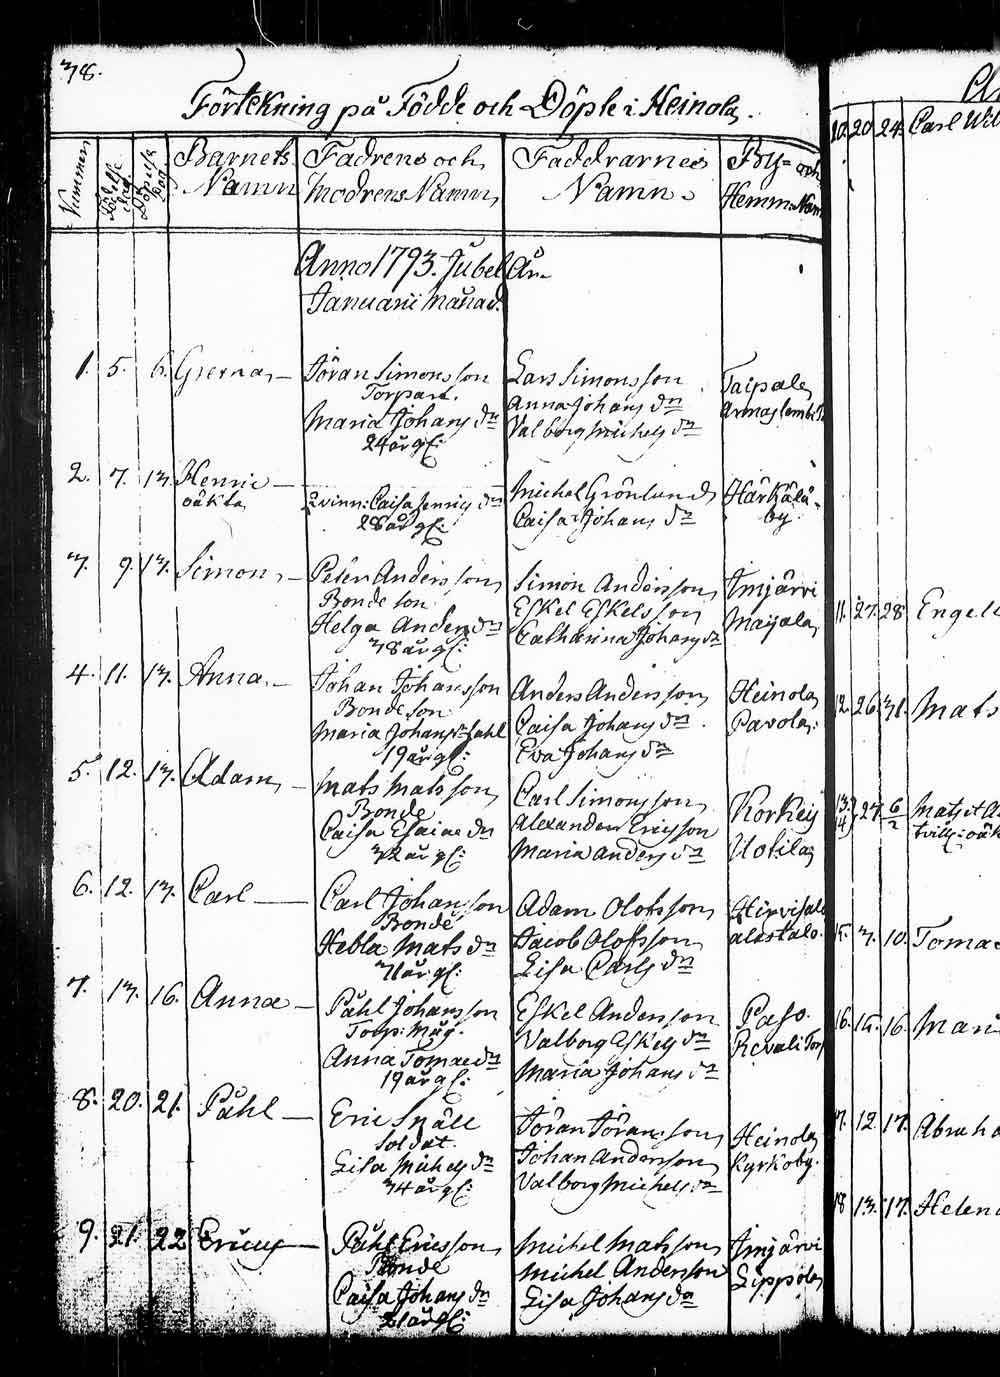 38.
Förtekning på Födde och Döpte i Heinola.
Nummer
Födelse dag
Döpelse dag
Barnets Namn
Fadrens och Modrens Namn
Faddrarnes Namn.
By- och Hemm: Nam
Anno 1793. Jubel År.
Januarii Månad.
1. 5. 6.
Jöran Simonsson
Torpare.
Maria Johans dn
24 år gl:
Lars Simonsson
Anna Johans dn
Valborg Michels dn
Taipale
2. 7. 13. Henric
oäkta
Qvinn: Caisa Henrics dn
28 år gl:
Michel Grönlund
Caisa Johans dn
Härkälä
by.
3. 9. 13. Simon
Peter Andersson
Bonde son
Helga Anders dn
38 år gl:
Simon Andersson
Eskel Eskelsson
Catharina Johans dn
Imjärvi
Maijala
4. 11. 13. Anna
Johan Johansson
Bonde son
Maria Johans dn
19 år gl:
Anders Andersson
Caisa Johans dn
Eva Johans dn
Heinola
Pavola
5. 12. 13. Adam
Mats Matsson
Bonde
Caisa Esaiae dn
32 år gl:
Carl Simonsson
Alexander Ericsson
Maria Anders dn
Korkey
Uotila
6. 12. 13. Carl
Carl Johansson
Bonde
Hebla Mats dn
31 år gl:
Adam Olofsson
Jacob Olofsson
Lisa Carls dn
Hirvisal
alastalo.
7. 13. 16. Anna
Påhl Johansson
Torp: Måg.
Anna Tomae dn
19 år gl:
Eskel Andersson
Valborg Eskels dn
Maria Johans dn
Paso.
Revali Torp
8. 20. 21. Påhl
Eric Snäll
Soldat.
Lisa Michels dn
34 år gl:
Jöran Jöransson
Johan Andersson
Valborg Michels dn
Heinola
Kyrkoby.
9. 21. 22 Ericus
Påhl Ericsson
Bonde
Caisa Johans dn
21 år gl:
Michel Matsson
Michel Andersson
Lisa Johans dn
Imjärvi
Lippola
10. 20. 24. Carl Wil
11. 27. 28. Engel
12. 26. 31. Mats
13. 14} 27 6/2 Mats et A
tvill: oäk
15. 3. 10. Tomas
16. 15. 16. Mari
17. 12. 17. Abraha
18 13. 17. Helen